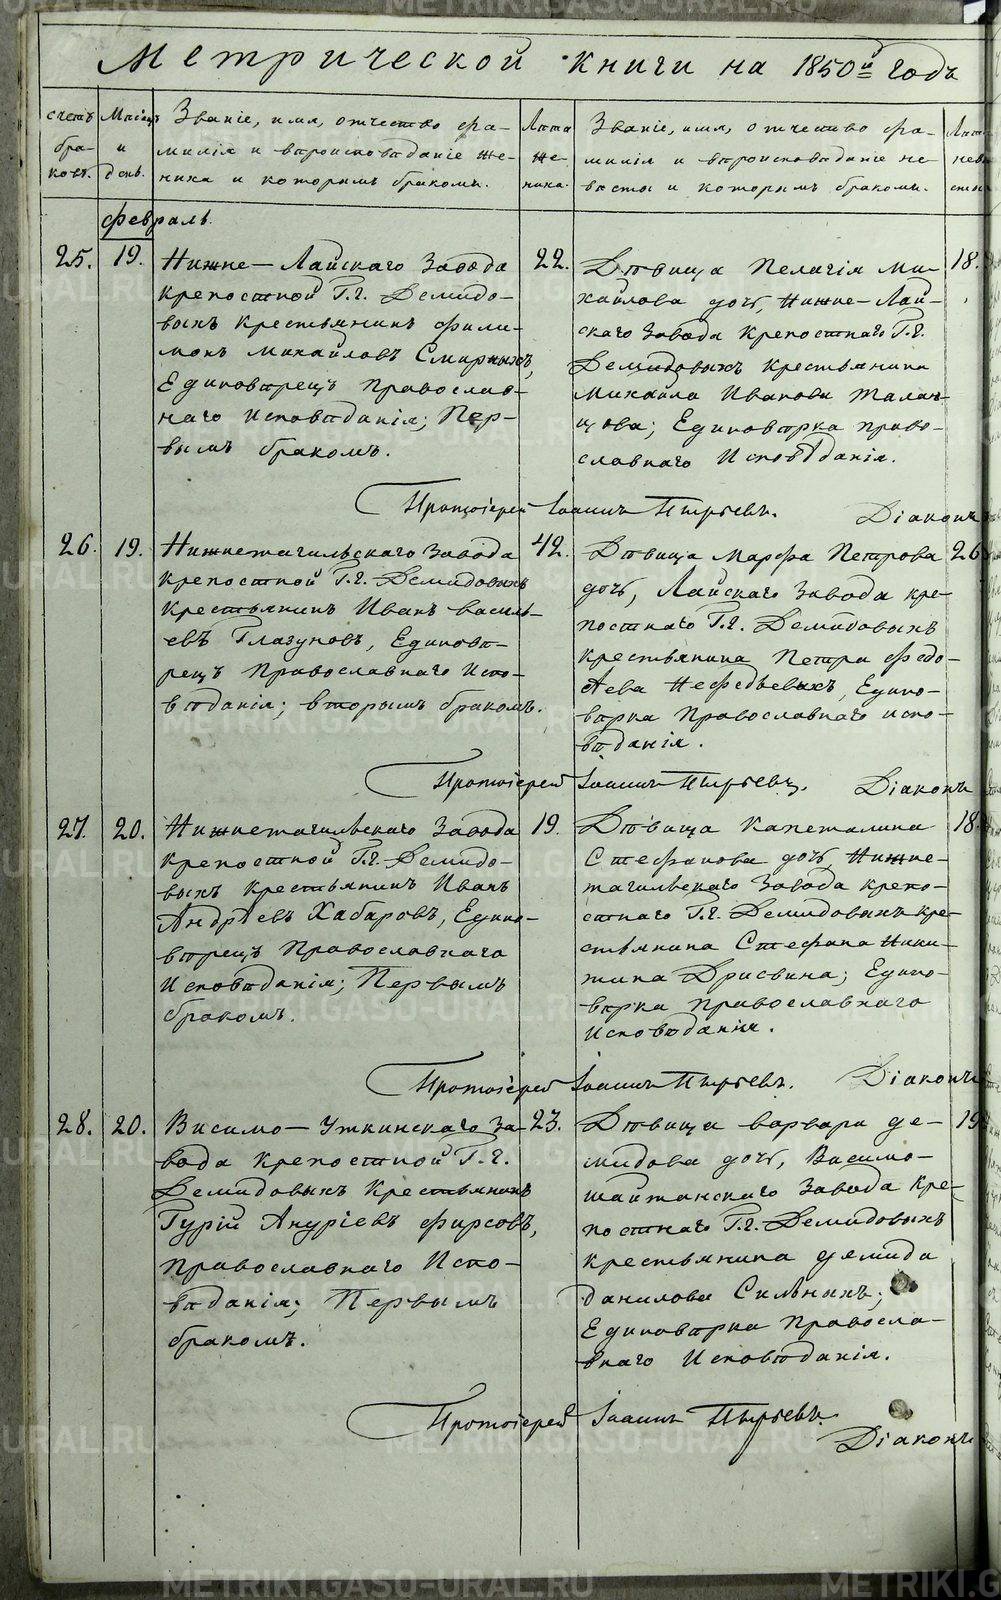 Метрической книги на 1850й годъ
счетъ браковъ.
Месяцъ и день.
Званіе, имя, отчество фа-
милія и вѣроисповѣданіе же-
ниха и которымъ бракомъ.
Лѣта же-
ниха.
Званіе, имя, отчество фа-
милія и вѣроисповѣданіе не-
весты и которымъ бракомъ.
февраль.
25.
19.
Нижне-Лайскаго Завода
крепостной Г.г. Демидо-
выхъ крестьянинъ фили-
монъ михайловъ Смирныхъ,
Единоверецъ православ-
наго Исповѣданія; Пер-
вымъ бракомъ.
22.
Дѣвица Пелагія Ми-
хайлова дочь, Нижне-Лай-
скаго Завода Крепостнаго Г.г.
Демидовыхъ крестьянина
Михайла Иванова
Единоверка право-
славнаго Исповѣданія.
18.
Протоіерей Іоаннъ Пырьевъ.
Діаконъ
26.
19.
Нижнетагильскаго Завода
крепостной Г.г. Демидовыхъ
крестьянинъ Иванъ Василь-
евъ Глазуновъ, Единове-
рецъ Православнаго Испо-
вѣданія; вторымъ бракомъ.
42.
Дѣвица Марфа Петрова
дочь, Лайскаго Завода кре-
постнаго Г.г. Демидовыхъ
крестьянина Петра федо-
Нефедьевыхъ, Едино-
верка Православнаго испо-
вѣданія.
26
Протоіерей Іоаннъ Пырьевъ.
Діаконъ
27.
20.
Нижнетагильскаго Завода
крепостной Г.г. Демидо-
выхъ крестьянинъ Иванъ
Андреевъ Хабаровъ, Едино-
верецъ Православнаго
Исповѣданія; Первымъ
бракомъ.
19.
Дѣвица Капеталина
Стефанова дочь, Нижне-
тагильскаго Завода крепо-
стнаго Г.г. Демидовыхъ кре-
стьянина Стефана Ники-
тина Едино-
верка Православнаго
Исповѣданія.
18.
Протоіерей Іоаннъ Пырьевъ.
Діаконъ
28.
20.
Висимо-Уткинскаго За-
вода крепостной Г.г.
Демидовыхъ Крестьянинъ
Гурій Андріевъ фирсовъ,
православнаго Испо-
вѣданія; Первымъ
бракомъ.
23.
Дѣвица варвара де-
мидова дочь, Висимо-
шайтанскаго Завода кре-
постнаго Г.г. Демидовыхъ
крестьянина демида
данилова Сильныхъ;
Единоверка Правосла-
внаго Исповѣданія.
19
Протоіерей Іоаннъ Пырьевъ.
Діаконъ
METRIKI.GASO-URAL.RU